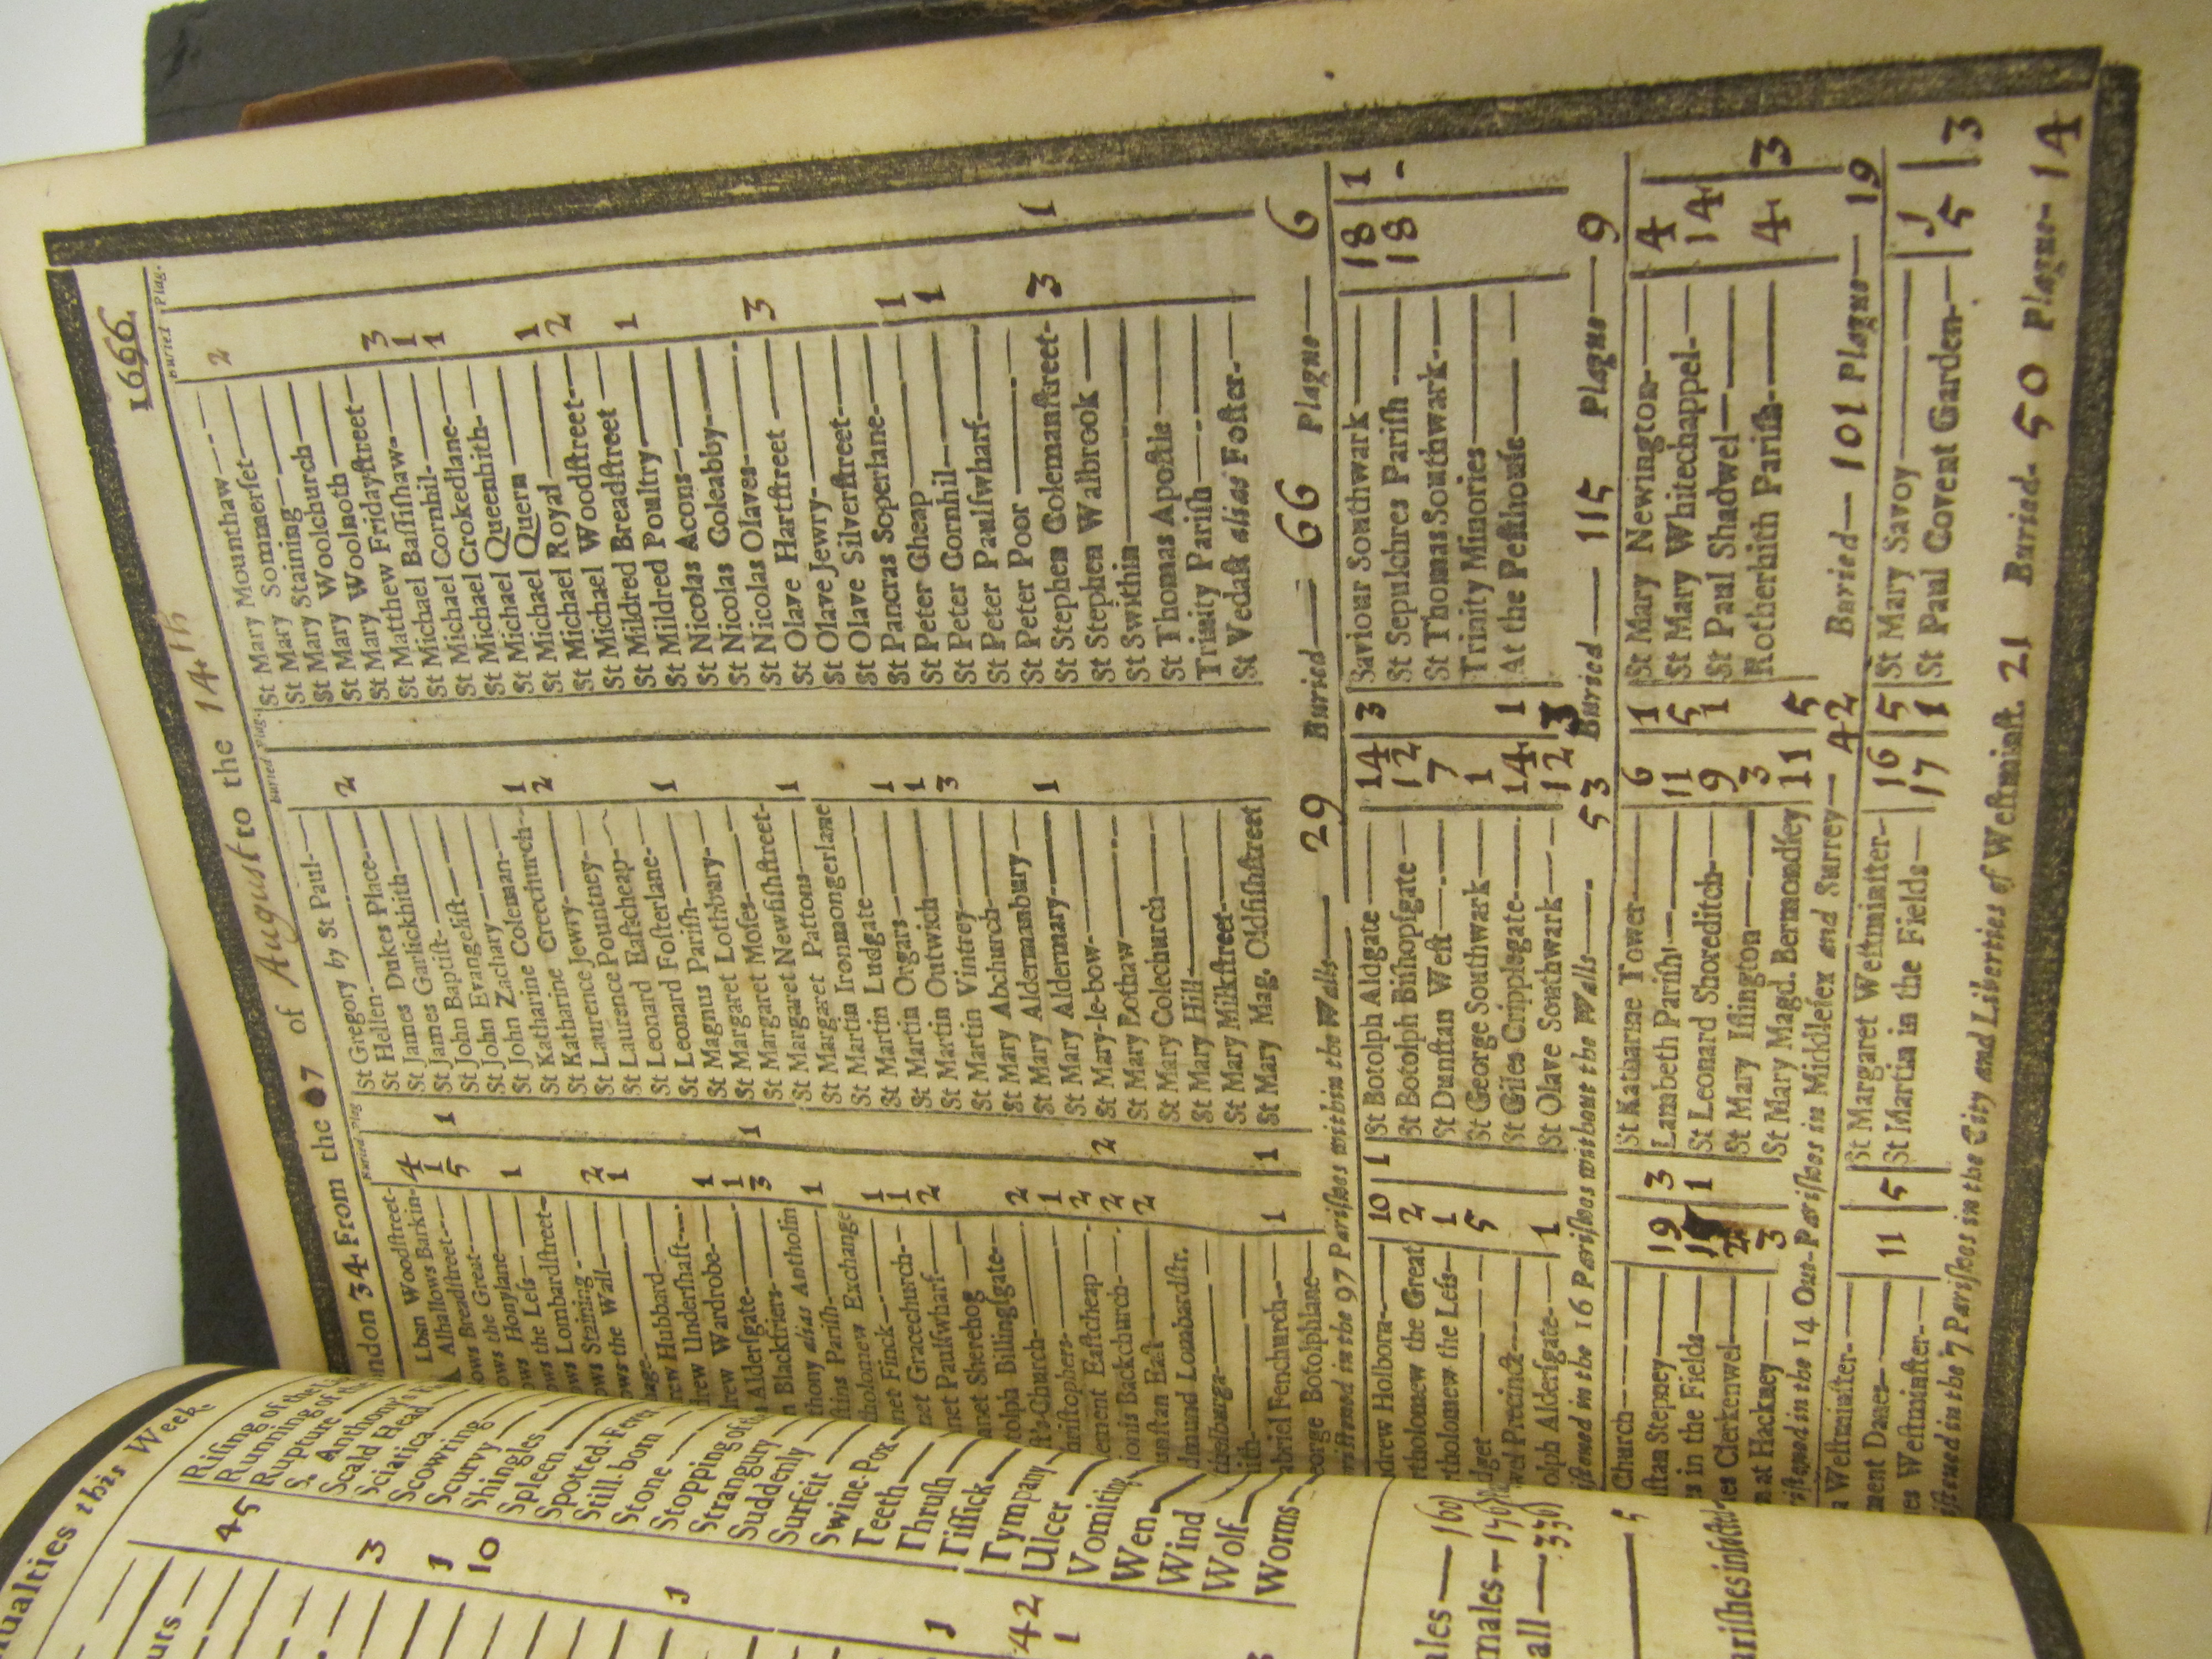 1666.
ndon 34 From the 7 of August to the 14th
Buried Plag.
Lban Woodstreet-
A Alhallows Barkin- 4
ows Breadstreet---- 1
ows the Great---- 5 1
ows Honylane---- 1
ows the Less---
ows Lombardstreet-
ows Staining-- 2
ows the Wall--- 1
rew Hubbard---
rew Undershaft---
rew Wardrobe--- 1
Aldersgate---- 1
Blackfriers--- 3 1
thony alias Antholin
stins Parish--- 1
tholomew Exchange
net Finck---- 1
net Gracechurch-- 1
net Paulswharf--- 2
anet Sherehog---
tolph Billingsgate--
t's Church--- 2
hristophers--- 1
ement Eastcheap-- 2
ionis Backchurch-- 2 2
unstan East--- 2
dmund Lombardstr.
thelburga---
ith---
briel Fenchurch--- 1 1
eorge Botolphlane--
Buried Plag.
St Gregory by St Paul--
St Hellen---- 2
St James Dukes Place--
St James Garlickhith--
St John Baptist---
St John Evangelist--
St John Zachary---
St Katharine Coleman-- 1
St Katharine Creechurch-- 2
St Katharine Jewry--
St Laurence Jewry--
St Laurence Pountney--
St Leonard Eastcheap-- 1
St Leonard Fosterlane-
St Magnus Parish--
St Margaret Lothbury--
St Margaret Moses---
St Margaret Newfishstreet- 1
St Margaret Pattons---
St Martin Ironmongerlane
St Martin Ludgate--- 1
St Martin Orgars--- 1
St Martin Outwich--- 3
St Martin Vintrey---
St Mary Abchurch---
St Mary Aldermanbury-- 1
St Mary Aldermary---
St Mary-le-bow---
St Mary Bothaw---
St Mary Colechurch---
St Mary Hill---
St Mary Milkstreet---
St Mary Mag. Oldfishstreet
Buried Plag.
St Mary Mounthaw---
St Mary Sommerset--- 2
St Mary Staining---
St Mary Woolchurch--
St Mary Woolnoth--
St Mary Fridaystreet--
St Matthew Fridaystreet- 3
St Michael Bassishaw-- 1
St Michael Cornhil--- 1
St Michael Crokedlane--
St Michael Queenhith--
St Michael Quern--- 1
St Michael Royal--- 2
St Michael Woodstreet--
St Mildred Breadstreet-- 1
St Mildred Poultry---
St Nicolas Acons---
St Nicolas Coleabby---
St Nicolas Olaves--- 3
St Olave Hartstreet---
St Olave Jewry---
St Olave Silverstreet---
St Pancras Soperlane-- 1
St Peter Cheap--- 1
St Peter Cornhil---
St Peter Paulswharf---
St Peter Poor---
St Stephen Colemanstreet- 3 1
St Stephen Walbrook---
St Swithin---
St Thomas Apostle---
Trinity Parish---
St Vedast alias Foster--
ristned in the 97 Parishes within the Walls— 29 Buried— 66 Plague— 6
drew Holborn--- 10 1
rtholomew the Great 2
rtholomew the Less-- 1
dget--- 5
wel Precinct---
olph Aldersgate-- 1
St Botolph Aldgate--- 14 3
St Botolph Bishopsgate-- 12
St Dunstan West--- 7
St George Southwark-- 1
St Giles Cripplegate-- 14 1
St Olave Southwark-- 12 3
Saviour Southwark--- 18 1
St Sepulchres Parish--- 18 -
St Thomas Southwark--
Trinity Minories---
At the Pesthouse---
istned in the 16 Parishes without the Walls— 53 Buried— 115 Plague— 9
Church---
stan Stepney--- 19 3
s in the Fields-- 1
es Clerkenwel---
n at Hackney--- 3
St Katharine Tower--- 6 1
Lambeth Parish--- 11 5
St Leonard Shoreditch-- 9 1
St Mary Islington--- 3
St Mary Magd. Bermondsey 11 5
St Mary Newington-- 4
St Mary Whitechappel-- 14
St Paul Shadwel---
Rotherhith Parish--- 4 3
ristned in the 14 Out-Parishes in Middlesex and Surrey— 42 Buried— 101 Plague— 19
Westminster---
ment Danes--- 11 5
es Westminster---
St Margaret Westminster-- 16 5
St Martin in the Fields--- 17 1
St Mary Savoy--- 1
St Paul Covent Garden-- 5 3
istned in the 7 Parishes in the City and Liberties of Westminst. 21 Buried- 50 Plague- 14
ualties this Week
uts— 45
3
1
10
1
1
42
1
Rising of the
Running of the
Rupture
S. Anthony's
Scald Head
Sciatica
Scowring
Scurvy
Shingles
Spleen
Spotted-Fever
Still-born
Stone
Stopping of
Strangury
Suddenly
Surfeit
Swine-Pox
Teeth
Thrush
Tissick
Tympany
Ulcer
Vomiting
Wen
Wind
Wolf
Worms
ales— 160
males— 170
all— 330
5
arishes infected